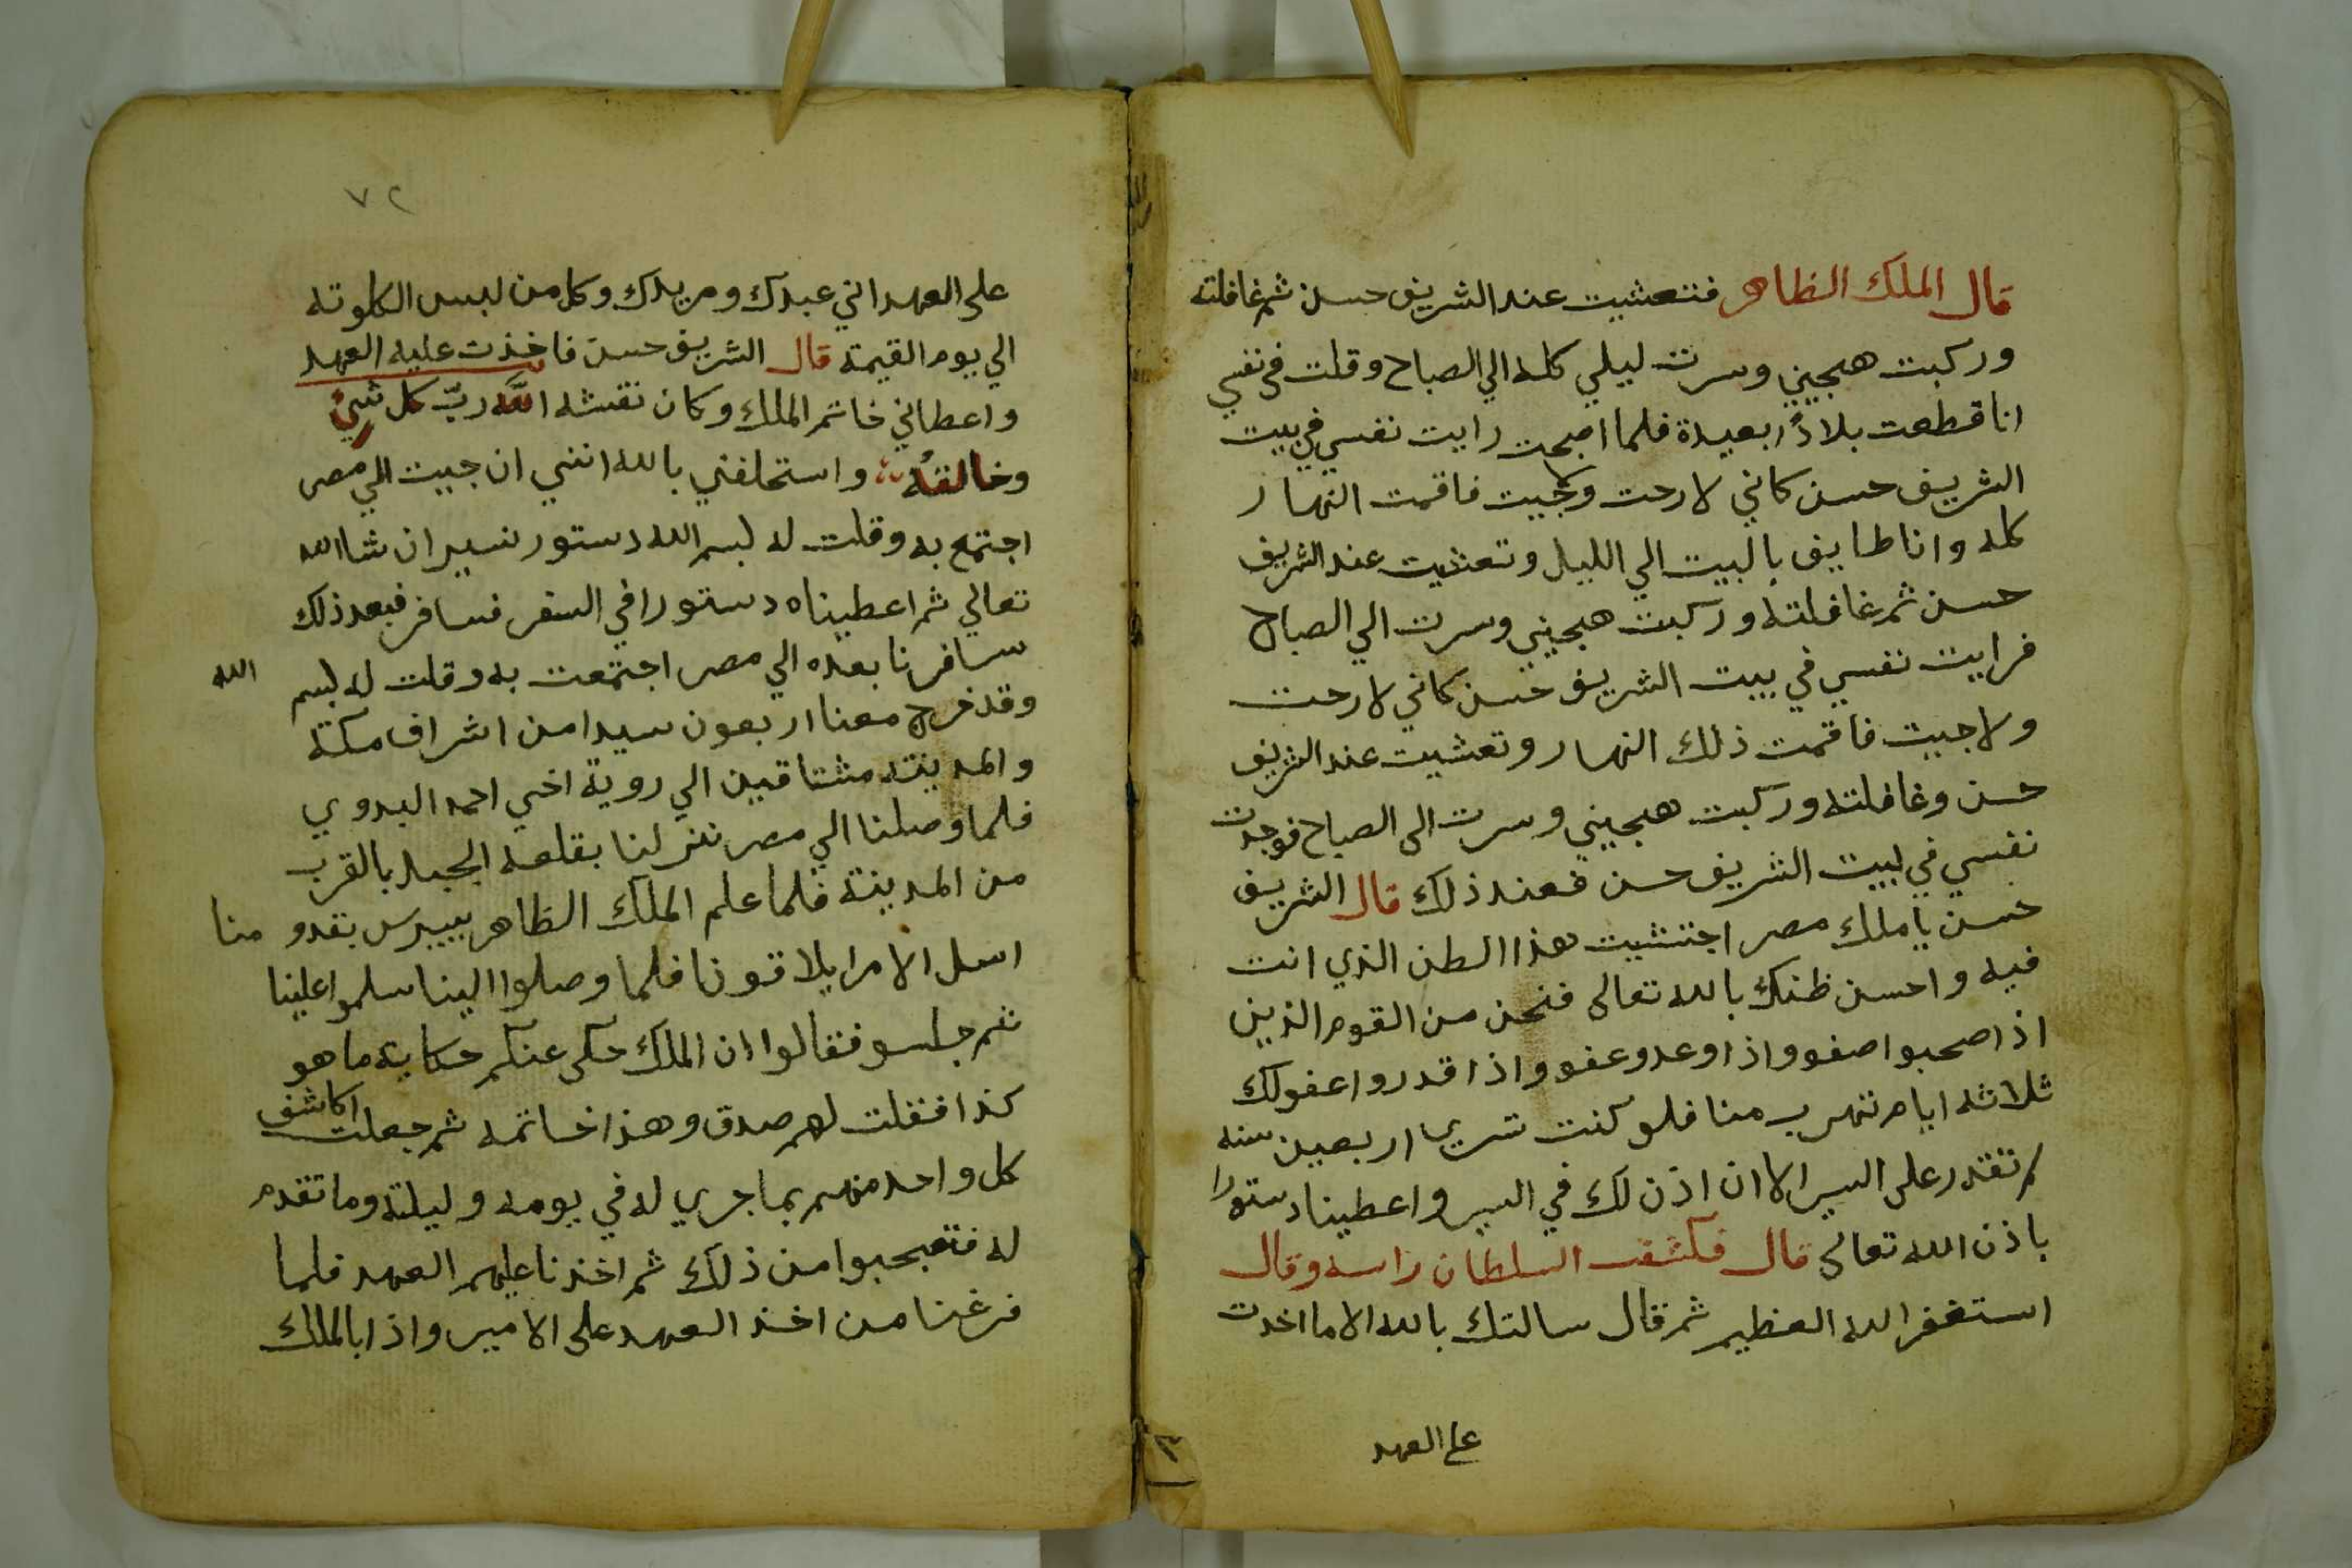 قال الملك الظاهر فتعشيت عند الشريف حسن ثم غافلته
وركبت هجيني وسرت ليلي كله الي الصباح وقلت في نفسي
انا قطعت بلادًا بعيدة فلما اصبحت رايت نفسي في بيت
الشريف حسن كاني لا رحت ولا جيت فاقمت النهار
كله وانا طايف بالبيت الي الليل وتعشيت عند الشريف
حسن ثم غافلته وركبت هجيني وسرت الي الصباح
فرايت نفسي في بيت الشريف حسن كاني لا رحت
ولا جيت فاقمت ذلك النهار وتعشيت عند الشريف
حسن وغافلته وركبت هجيني وسرت الى الصباح فوجدت
نفسي في بيت الشريف حسن فعند ذلك قال الشريف
حسن يا ملك مصر اجتنبت هذا الظن الذي انت
فيه واحسن ظنك بالله تعالى فنحن من القوم الذين
اذا صحبوا صفو واذا وعدو عفو واذا قدروا عفو لك
ثلاثه ايام تهرب منا فلو كنت تسري اربعين سنه
لم تقدر على السير الا ان اذن لك في السير واعطينا دستورا
باذن الله تعالى قال فكشف السلطان راسه وقال
استغفر الله العظيم ثم قال سالتك بالله الا ما اخدت
على العهد
٧٢
على العهد اني عبدك ومريدك وكل من لبس الكلوته
الي يوم القيمة قال الشريف حسن فاخذت عليه العهد
واعطاني خاتم الملك وكان نقشه الله ربّ كل شيئ
وخالقهُ واستحلفني بالله انني ان جيت الي مصر
اجتمع به وقلت له بسم الله دستور نسير ان شا الله
تعالي ثم اعطيناه دستورا في السفر فسافر فبعد ذلك
سافرنا بعده الي مصر اجتمعت به وقلت له بسم الله
وقد خرج معنا اربعون سيدا من اشراف مكة
والمدينه مشتاقين الي روية اخي احمد البدوي
فلما وصلنا الي مصر نزلنا بقلعه الجبل بالقرب
من المدينة فلما علم الملك الظاهر بيبرس بقدو منا
ارسل الامرا يلاقونا فلما وصلوا الينا سلموا علينا
ثم جلسو فقالوا ان الملك حكى عنكم حكاية ما هو
كذا فقلت لهم صدق وهذا خاتمه ثم جعلت اكاشف
كل واحد منهم بما جري له في يومه وليلته وما تقدم
له فتعجبوا من ذلك ثم اخذنا عليهم العهد فلما
فرغنا من اخذ العهد على الامير واذا بالملك